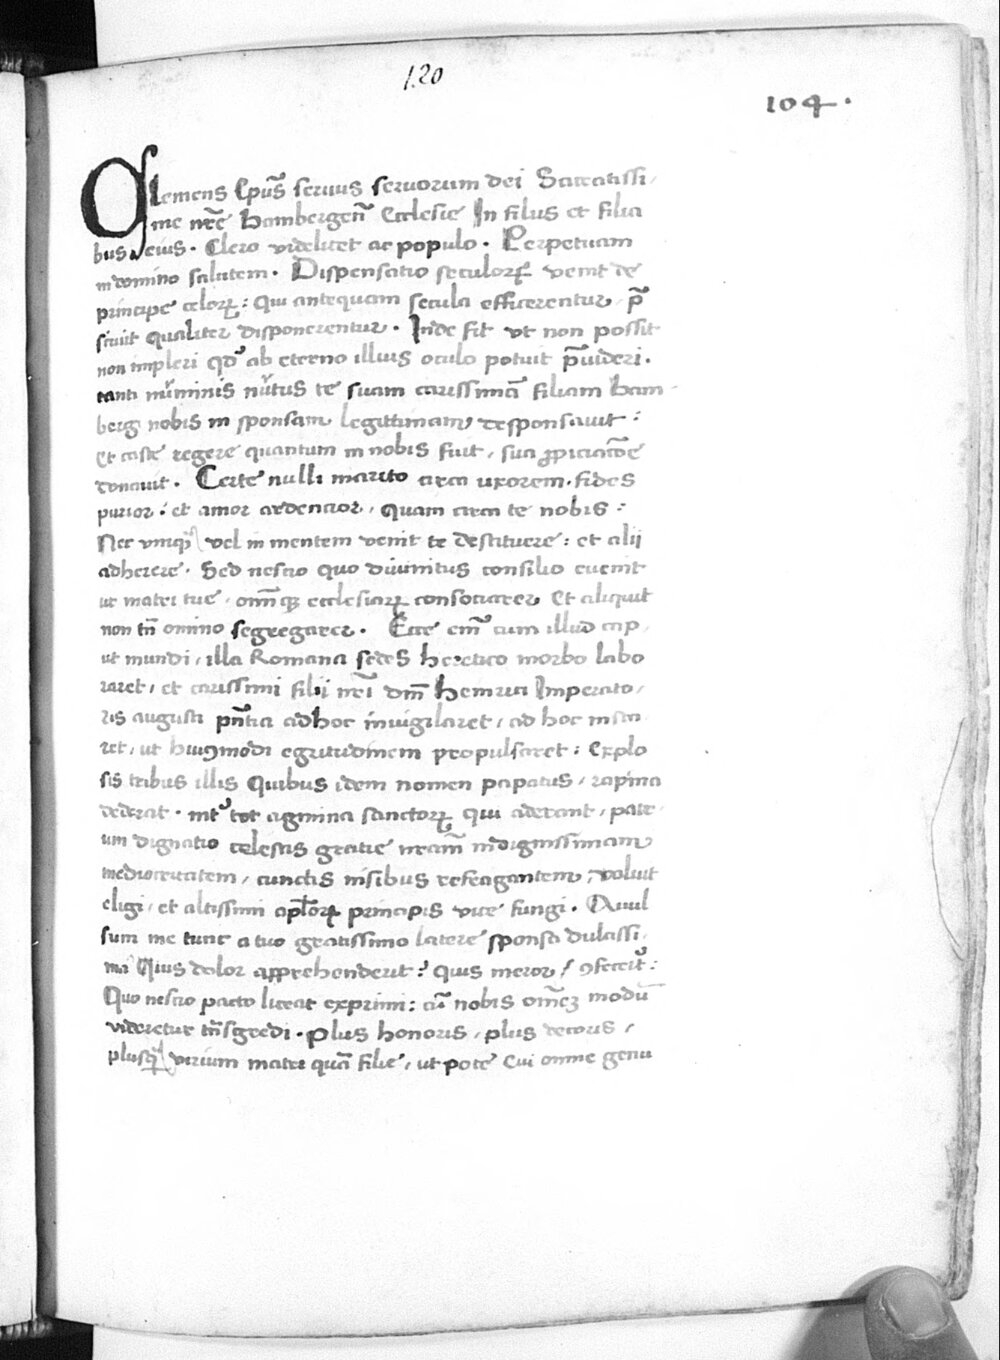 120
104.
Clemens Ep̃us servus servorum dei Sacratissi
me nr̃e Bambergeñ Ecclesie In filiis et filia
bus eius. Clero videlicet ac populo. Perpetuam
in domino salutem. Dispensatio seculorꝝ venit de
principe celorꝝ: Qui antequam secula efficerentur, p̃
scivit qualiter disponerentur. Inde fit ut non possit
non impleri qđ ab eterno illius oculo potuit p̃videri.
tanti numinis nutus te suam carissimã filiam Bam
berg nobis in sponsam legittimam desponsavit:
et caste regere quantum in nobis fuit, sua ꝓpiciatõe
donavit. Certe nulli marito circa uxorem fides
purior: et amor ardencior, quam circa te nobis:
Nec vnq̃ vel in mentem venit te destituere: et alij
adherere. Sed nescio quo divinitus consilio euenit
ut matri tue, om̃iq̃ ecclesiarꝝ consociarer Et aliquit
non tñ omino segregarer. Ecce em̃ cum illud cap
ut mundi, illa Romana sedes heretico morbo labo
raret, et carissimi filii nr̃i dom̃ Henrici Imperato
ris augusti p̃ntia ad hoc invigilaret, ad hoc insta
ret, ut huiꝰmodi egritudinem propulsaret: Explo
sis tribus illis Quibus idem nomen papatus, rapina
dederat. int̾ tot agmina sanctorꝝ qui aderant, patr
um dignatio celestis gratie nr̃am indignissimam
mediocritatem, cunctis nisibus refragantem, voluit
eligi, et altissimi ap̃lorꝝ principis vice fungi. Avul
sum me tunc a tuo gratissimo latere sponsa dulcissi
ma Quis dolor apprehenderit? quis meror, ꝯfecerit:
Quo nescio pacto liceat exprimi: cũ nobis om̃eꝫ modũ
videretur trñsgredi. Plus honoris, plus decoris,
plusq̃ virium matri quã filie, ut pote Cui omne genu